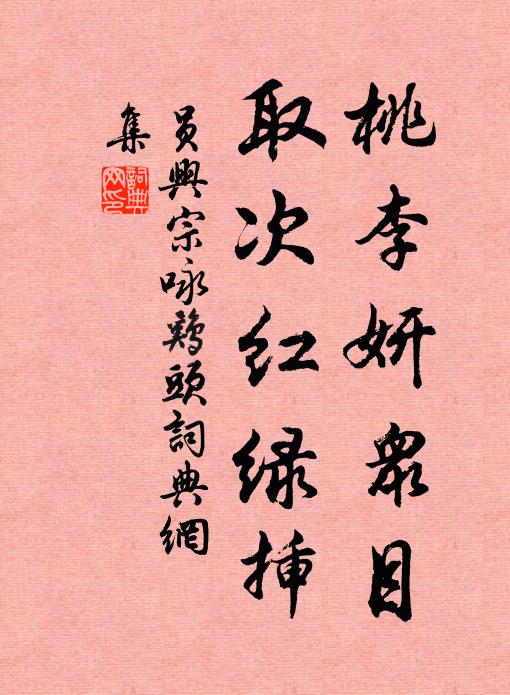 桃李妍眾目
取次红绿插
员興宗咏鷄頭詞典網
集
詞典
网印